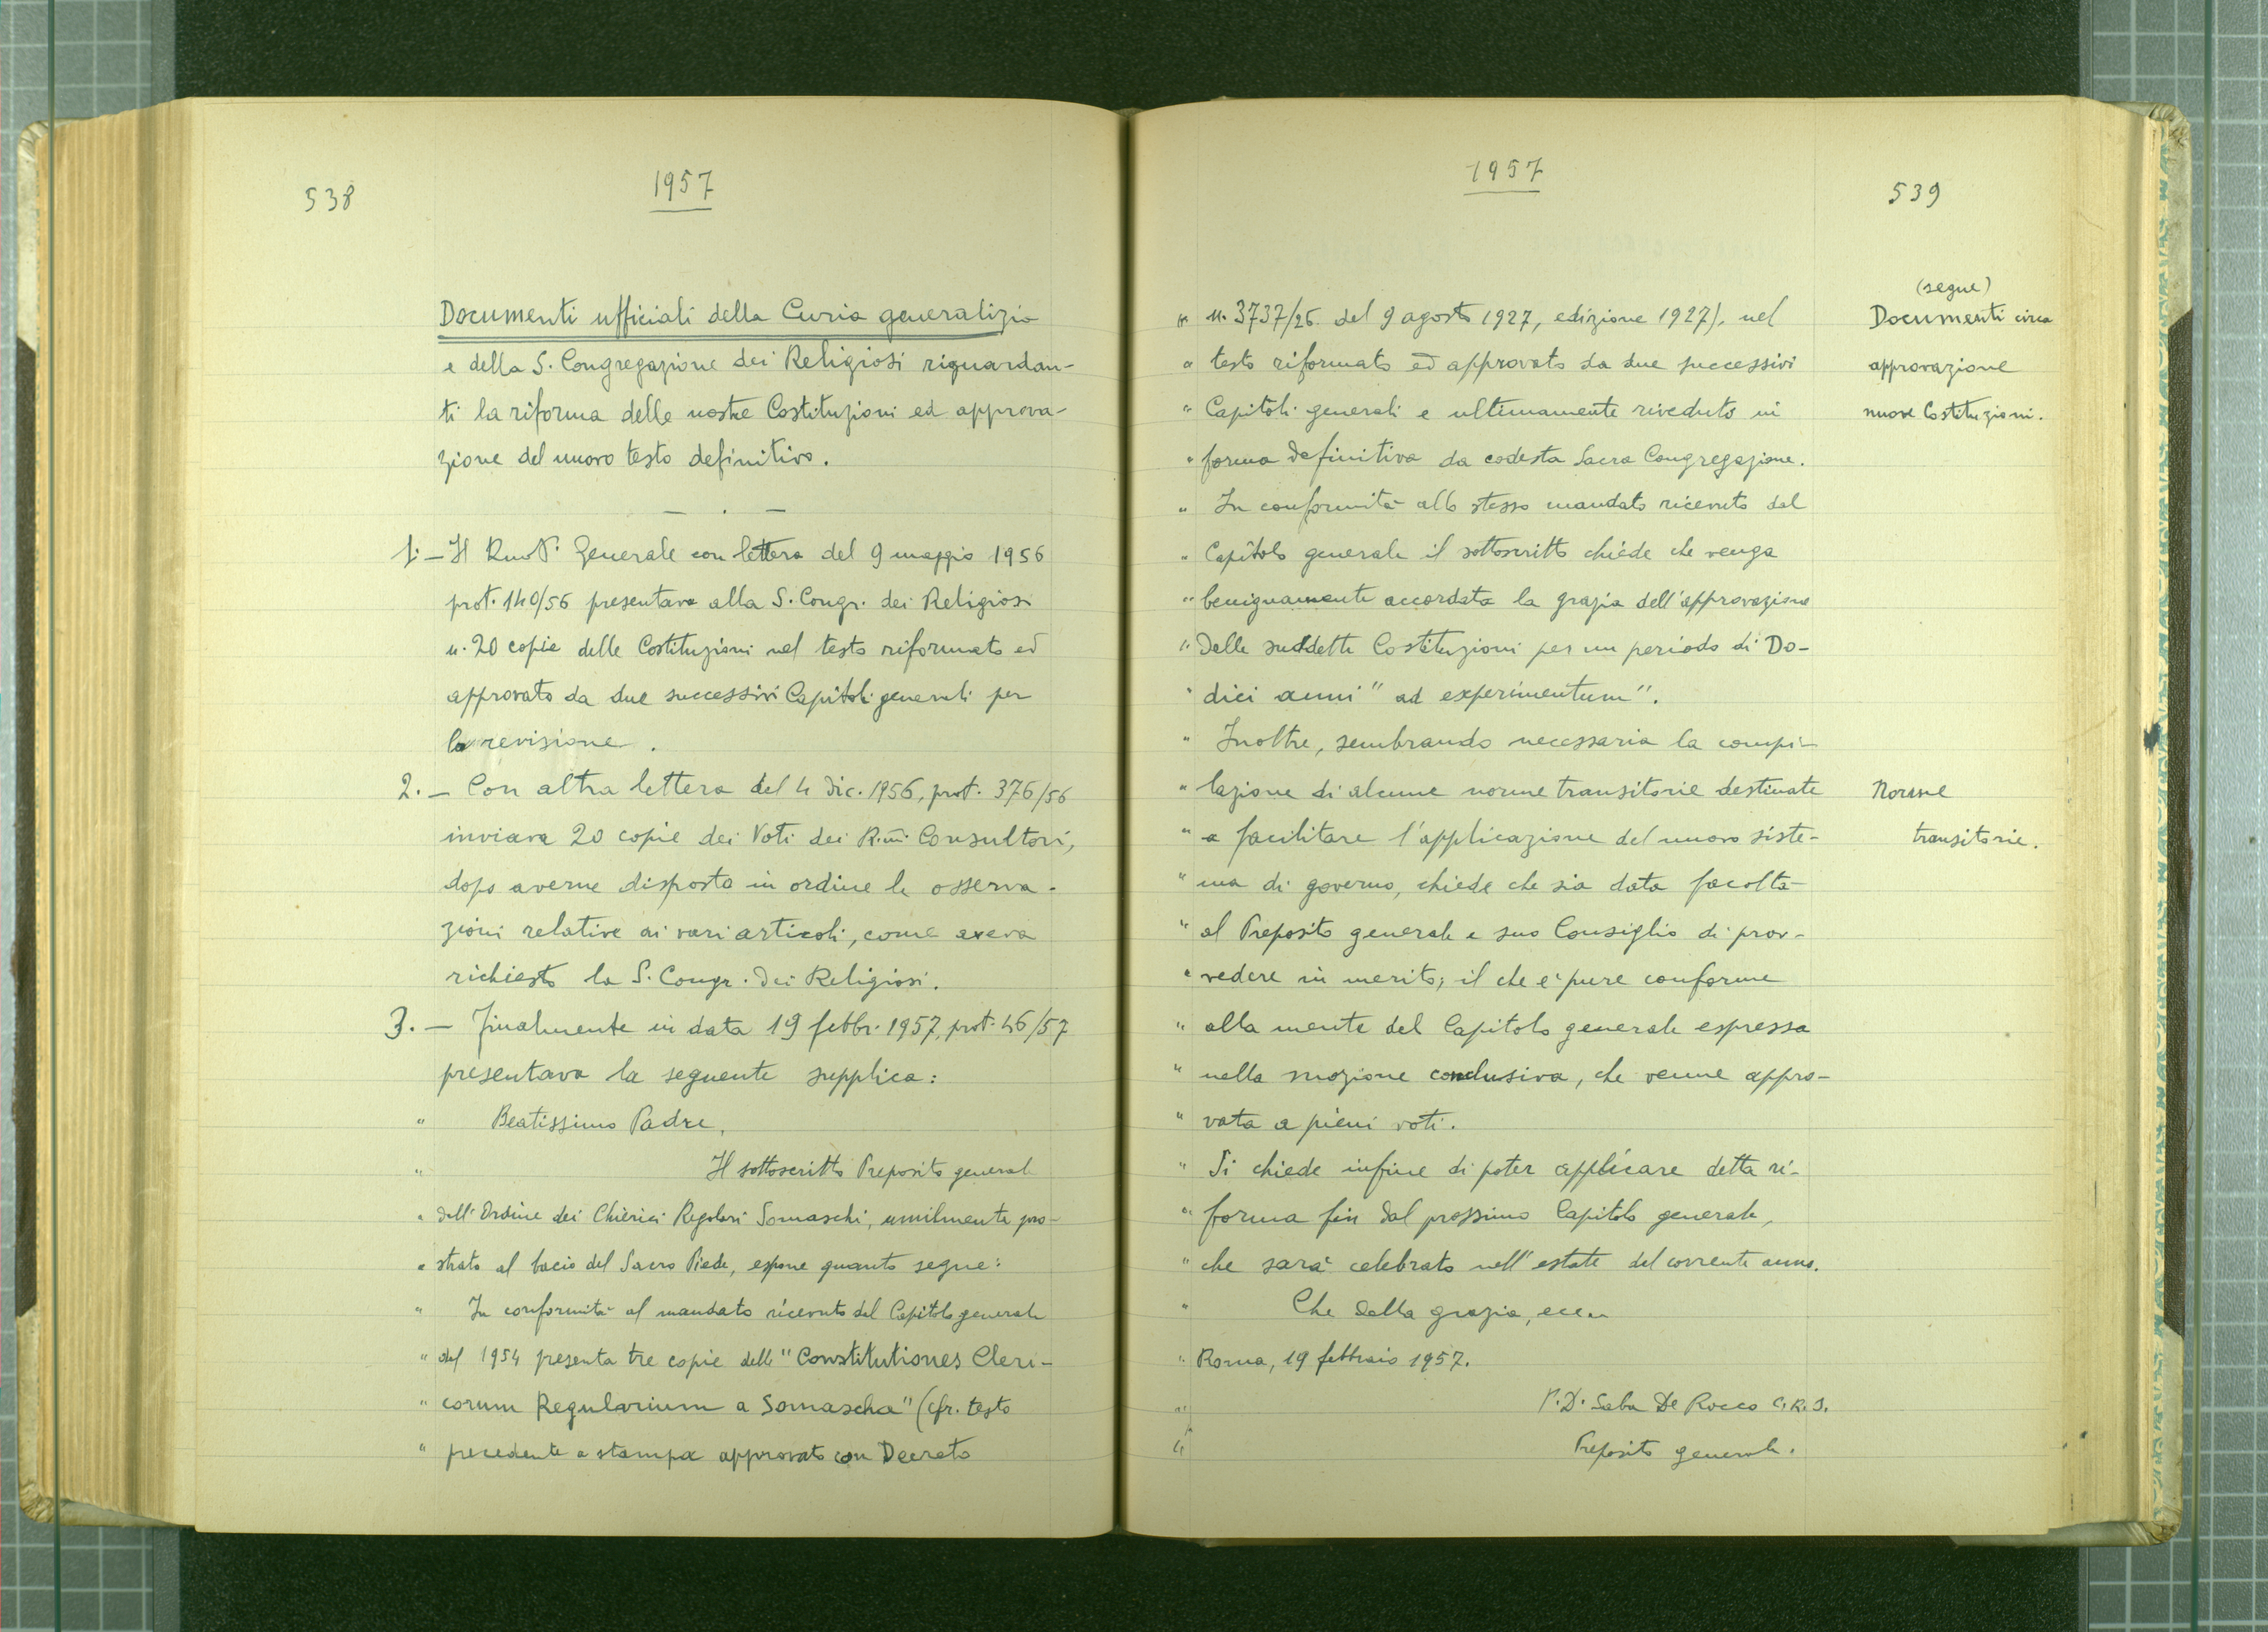 538
1957
Documenti ufficiali della Curia generalizia
e della S. Congregazione dei Religiosi riguardan-
ti la riforma delle nostre Costituzioni ed approva-
zione del nuovo testo definitivo.
— . —
1. — Il Rmo P. Generale con lettera del 9 maggio 1956
prot. 140/56 presentava alla S. Congr. dei Religiosi
n. 20 copie delle Costituzioni nel testo riformato ed
approvato da due successivi Capitoli generali per
la revisione.
2. — Con altra lettera del 4 dic. 1956, prot. 376/56
inviava 20 copie dei Voti dei R.mi Consultori,
dopo averne disposto in ordine le osserva-
zioni relative ai vari articoli, come aveva
richiesto la S. Congr. dei Religiosi.
3. — Finalmente in data 19 febbr. 1957, prot. 46/57
presentava la seguente supplica:
" Beatissimo Padre,
" Il sottoscritto Preposito general
" dell'Ordine dei Chierici Regolari Somaschi, umilmente pro-
" strato al bacio del Sacro Piede, espone quanto segue:
" In conformità al mandato ricevuto dal Capitolo generale
" del 1954 presenta tre copie delle "Constitutiones Cleri-
" corum Regularium a Somascha" (cfr. testo
" precedente a stampa approvato con Decreto
1957
539
" n. 3737/26 del 9 agosto 1927, edizione 1927), nel
" testo riformato ed approvato da due successivi
" Capitoli generali e ultimamente riveduto in
" forma definitiva da codesta Sacra Congregazione.
" In conformità allo stesso mandato ricevuto dal
" Capitolo generale il sottoscritto chiede che venga
" benignamente accordata la grazia dell'approvazione
" delle suddette Costituzioni per un periodo di Do-
" dici anni "ad experimentum".
" Inoltre, sembrando necessaria la compi-
" lazione di alcune norme transitorie destinate
" a facilitare l'applicazione del nuovo siste-
" ma di governo, chiede che sia data facoltà
" al Preposito generale e suo Consiglio di prov-
" vedere in merito; il che è pure conforme
" alla mente del Capitolo generale espressa
" nella mozione conclusiva, che venne appro-
" vata a pieni voti.
" Si chiede infine di poter applicare detta ri-
" forma fin dal prossimo Capitolo generale,
" che sarà celebrato nell'estate del corrente anno.
" Che della grazia, ecc..
" Roma, 19 febbraio 1957.
" P. D. Saba De Rocco C.R.S.
" Preposito generale.
(segue)
Documenti circa
approvazione
nuove Costituzioni.
Norme
transitorie.